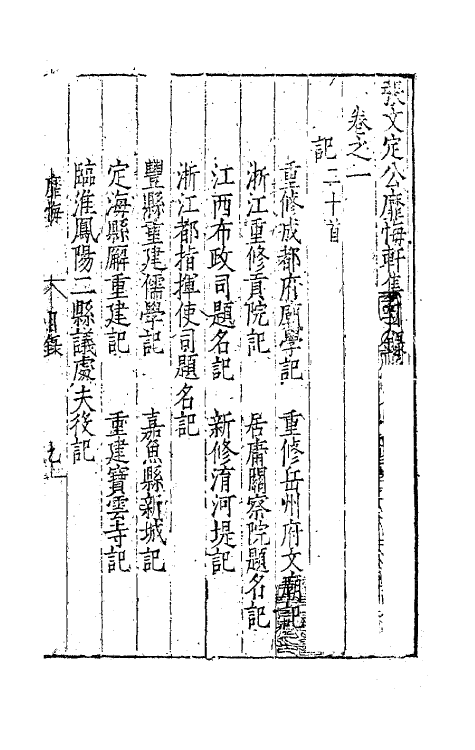 張文定公靡悔軒集目錄
卷之一
記二十首
重修成都府廟學記　重修岳州府文廟記
浙江重修貢院記　居庸關察院題名記
江西布政司題名記　新修淯河堤記
浙江都指揮使司題名記
豐縣重建儒學記　嘉魚縣新城記
定海縣廨重建記　重建寶雲寺記
臨淮鳳陽二縣議處夫役記
靡悔　目錄